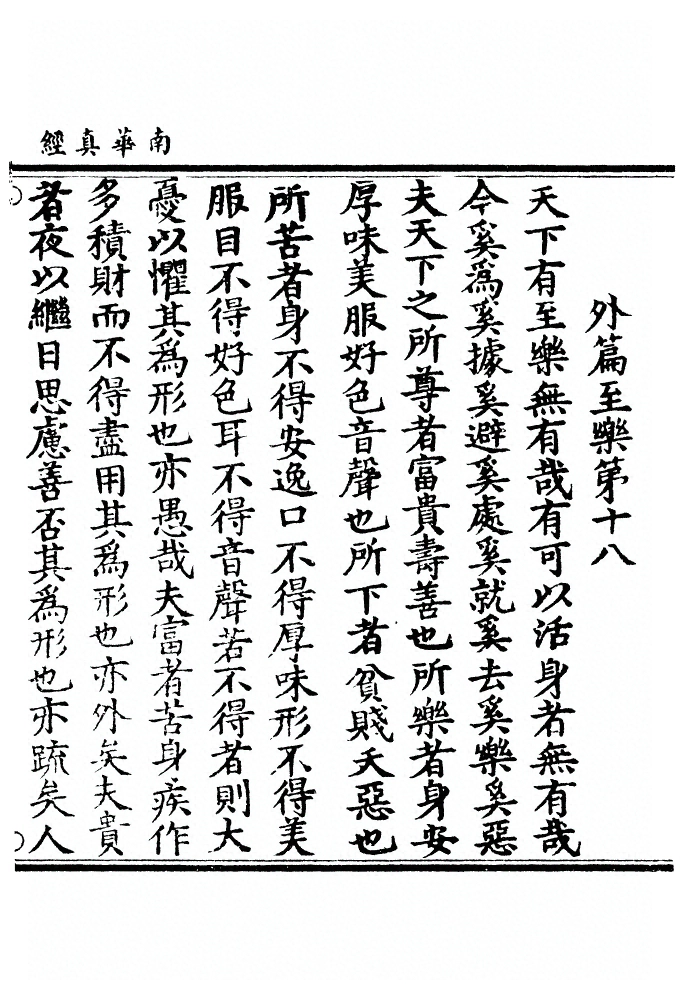 南華真經
外篇至樂第十八
天下有至樂無有哉有可以活身者無有哉
今奚為奚據奚避奚處奚就奚去奚樂奚惡
夫天下之所尊者富貴壽善也所樂者身安
厚味美服好色音聲也所下者貧賤夭惡也
所苦者身不得安逸口不得厚味形不得美
服目不得好色耳不得音聲若不得者則大
憂以懼其為形也亦愚哉夫富者苦身疾作
多積財而不得盡用其為形也亦外矣夫貴
者夜以繼日思慮善否其為形也亦疏矣人